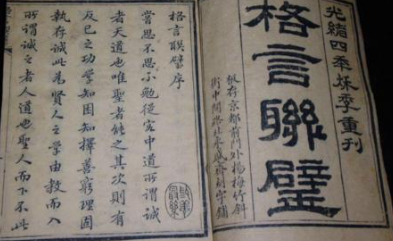 光緒四年秋季重刊
格言聯璧
板存京都前門外楊梅竹斜
街中間路北永盛齋刻字鋪
格言聯璧序
嘗思不思不勉從容中道所謂誠
者天道也唯聖者能之其次則有
反己之功學知困知擇善窮理固
執存誠此為賢人之學由教而入
所謂誠之者人道也聖人而下不比